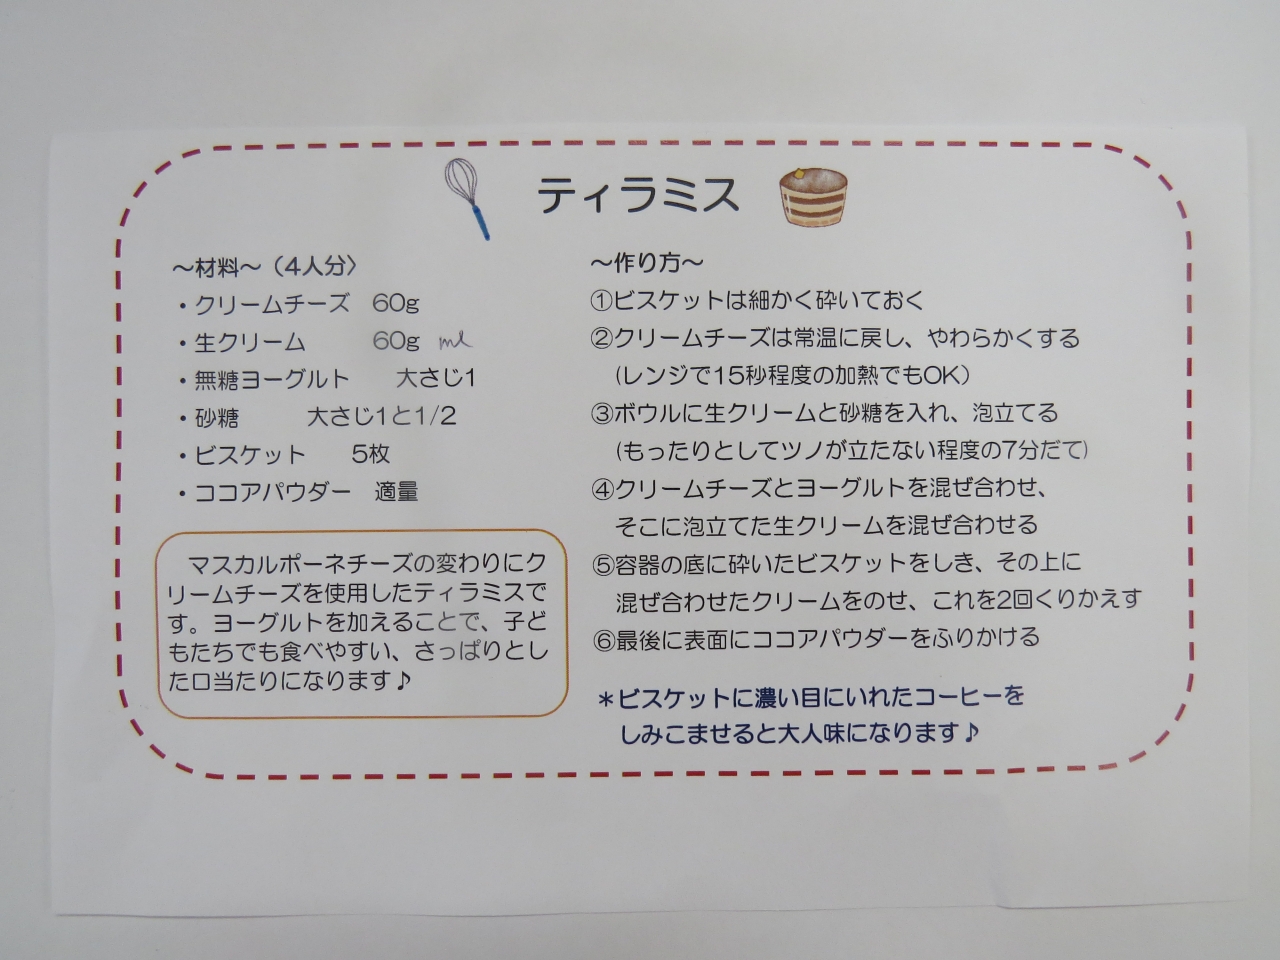 ティラミス
～材料～（4人分）
・クリームチーズ　60g
・生クリーム　　　60g　ml
・無糖ヨーグルト　　大さじ1
・砂糖　　　大さじ1と1/2
・ビスケット　　5枚
・ココアパウダー　適量
　マスカルポーネチーズの変わりにク
リームチーズを使用したティラミスで
す。ヨーグルトを加えることで、子ど
もたちでも食べやすい、さっぱりとし
た口当たりになります♪
～作り方～
①ビスケットは細かく砕いておく
②クリームチーズは常温に戻し、やわらかくする
（レンジで15秒程度の加熱でもOK）
③ボウルに生クリームと砂糖を入れ、泡立てる
（もったりとしてツノが立たない程度の7分だて）
④クリームチーズとヨーグルトを混ぜ合わせ、
そこに泡立てた生クリームを混ぜ合わせる
⑤容器の底に砕いたビスケットをしき、その上に
混ぜ合わせたクリームをのせ、これを2回くりかえす
⑥最後に表面にココアパウダーをふりかける
＊ビスケットに濃い目にいれたコーヒーを
しみこませると大人味になります♪